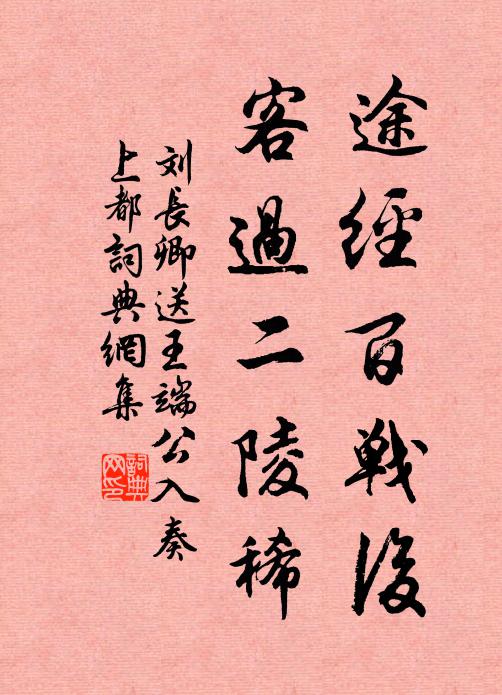 途經百戰後
客過二陵稀
刘長卿送王端公入奏
上都詞典網集
詞典
网印